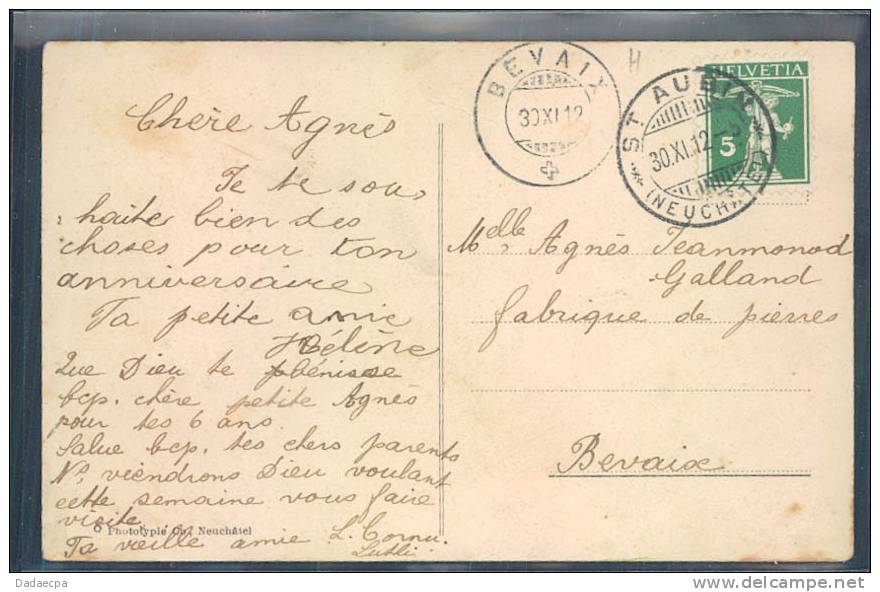 Chère Agnès
Je te sou,
haite bien des
choses pour ton
anniversaire
Ta petite amie
Hélène
Que Dieu te bénisse
bcp. chère petite Agnès
pour tes 6 ans.
Salue bcp. tes chers parents
Ns. viendrons Dieu voulant
cette semaine vous faire
visite.
Phototypie Co., Neuchâtel
Ta vieille amie L. Cornu.
BEVAIX
30 XI 12
H
ST AUBIN
30.XI.12
(NEUCHATEL)
HELVETIA
5
Melle Agnès Jeanmonod
Galland
fabrique de pierres
Bevaix
Dadaecpa
www.delcampe.net